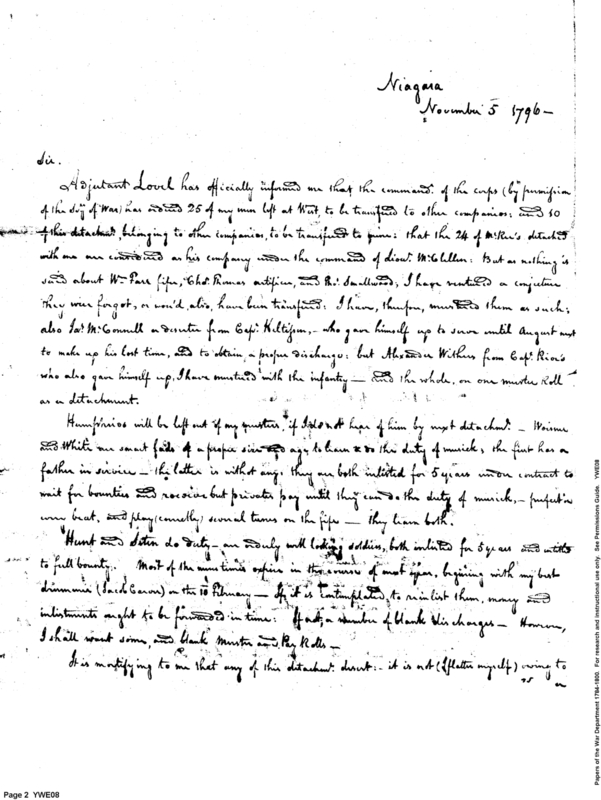 Niagara
November 5 1796 -
Sir.
Adjutant Lovel has officially informed me that the command.t of the corps (by permission
of the Sy of War) has ordered 25 of my men left at West, to be transfered to other companies: and 50
of this detachmt, belonging to other companies, to be transfered to mine: that the 24 of detached
with me are considered as his company under the command of Lieut. McClellen: But as nothing is
said about Wm. Parr fifer, Chos. Thomas artificer, and Smallwood; I have ventured a conjecture
they were forgot, or wou'd, also, have been transfered: I have, therefore, mustered them as such;
also Jas. McConnell a deserter from Capt. - who gave himself up to serve until August next
to make up his lost time, and to obtain, a proper discharge: but Alexander Withers from Capt.
who also gave himself up, I have mustered with the infantry - and the whole, on one muster Roll
as a detachment.
Humphries will be left out of my musters, if I do not hear of him by next detachmt. -
and White are smart lads of a proper size and age to learn & do the duty of musick; the first has a
father in service - the latter is without any: they are both inlisted for 5 years under contract to
wait for bounties and receive but privates pay until they can do the duty of musick, -
every beat, and play several tunes on the fife - they learn both.
Hunt and do duty - are orderly well looking soldiers, both inlisted for 5 years and
to full bounty. Most of the mens times expire in the course of next year, begining with my best
drummer (Jacob ) on the 10 February - If it is contemplated, to reinlist them, money and
inlistments ought to be forwarded in time: If not, a number of blank discharges - However,
I shall want some, and blank Muster and Pay Rolls -
It is mortifying to me that any of this detachmt. desert: - it is not (I flatter myself) owing to
Page 2 YWE08
Papers of the War Department 1784-1800. For research and instructional use only. See Permissions Guide. YWE08